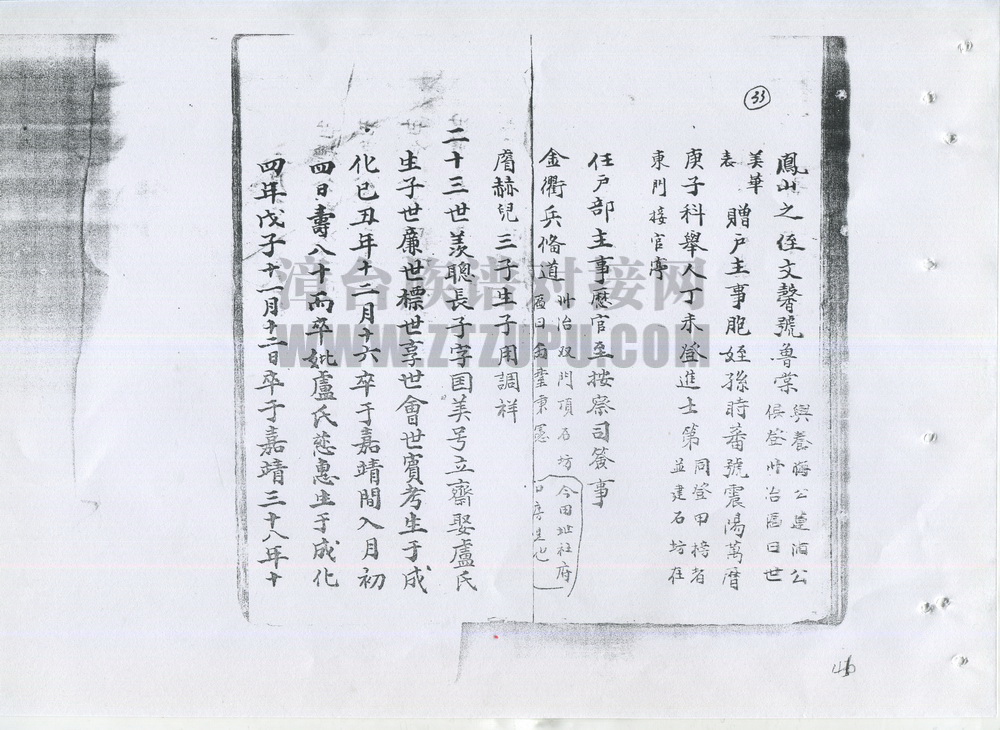 33
鳳山之侄文馨號魯棠
與養晦公蓮洎公
俱登州治匾曰世
美華
表
贈戶主事胞姪孫時蕃號震陽萬曆
庚子科舉人丁未登進士第
同登甲榜者
並建石坊在
東門接官亭
任戶部主事歷官至按察司簽事
金衢兵備道
州治双門頂石坊
匾曰 臺東憲
今田址在府
口 庠生也
膺赫兒三子生子用調祥
二十三世羨聰長子字国美号立齋娶盧氏
生子世廉世標世享世會世賓考生于成
化己丑年十二月十六卒于嘉靖間入月初
四日壽八十而卒妣盧氏慈惠生于成化
四年戊子十一月十二日卒于嘉靖三十八年十
漳台族谱对接网
WWW.ZTZUPU.COM